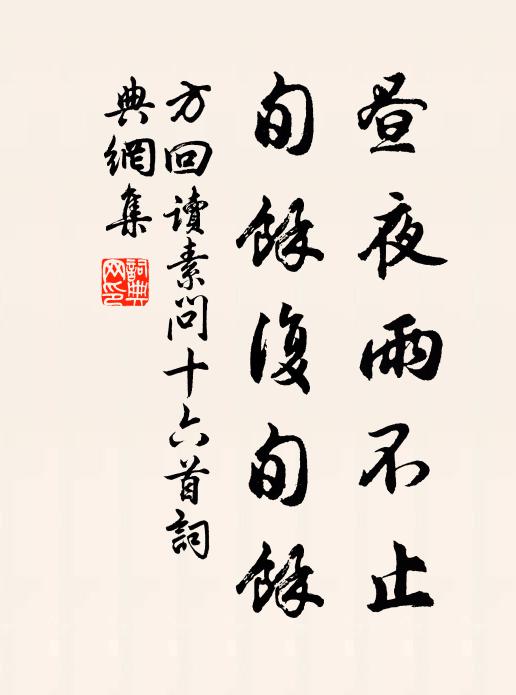 昼夜雨不止
旬餘復旬餘
方回讀素問十六首詞
典網集
詞典
网印